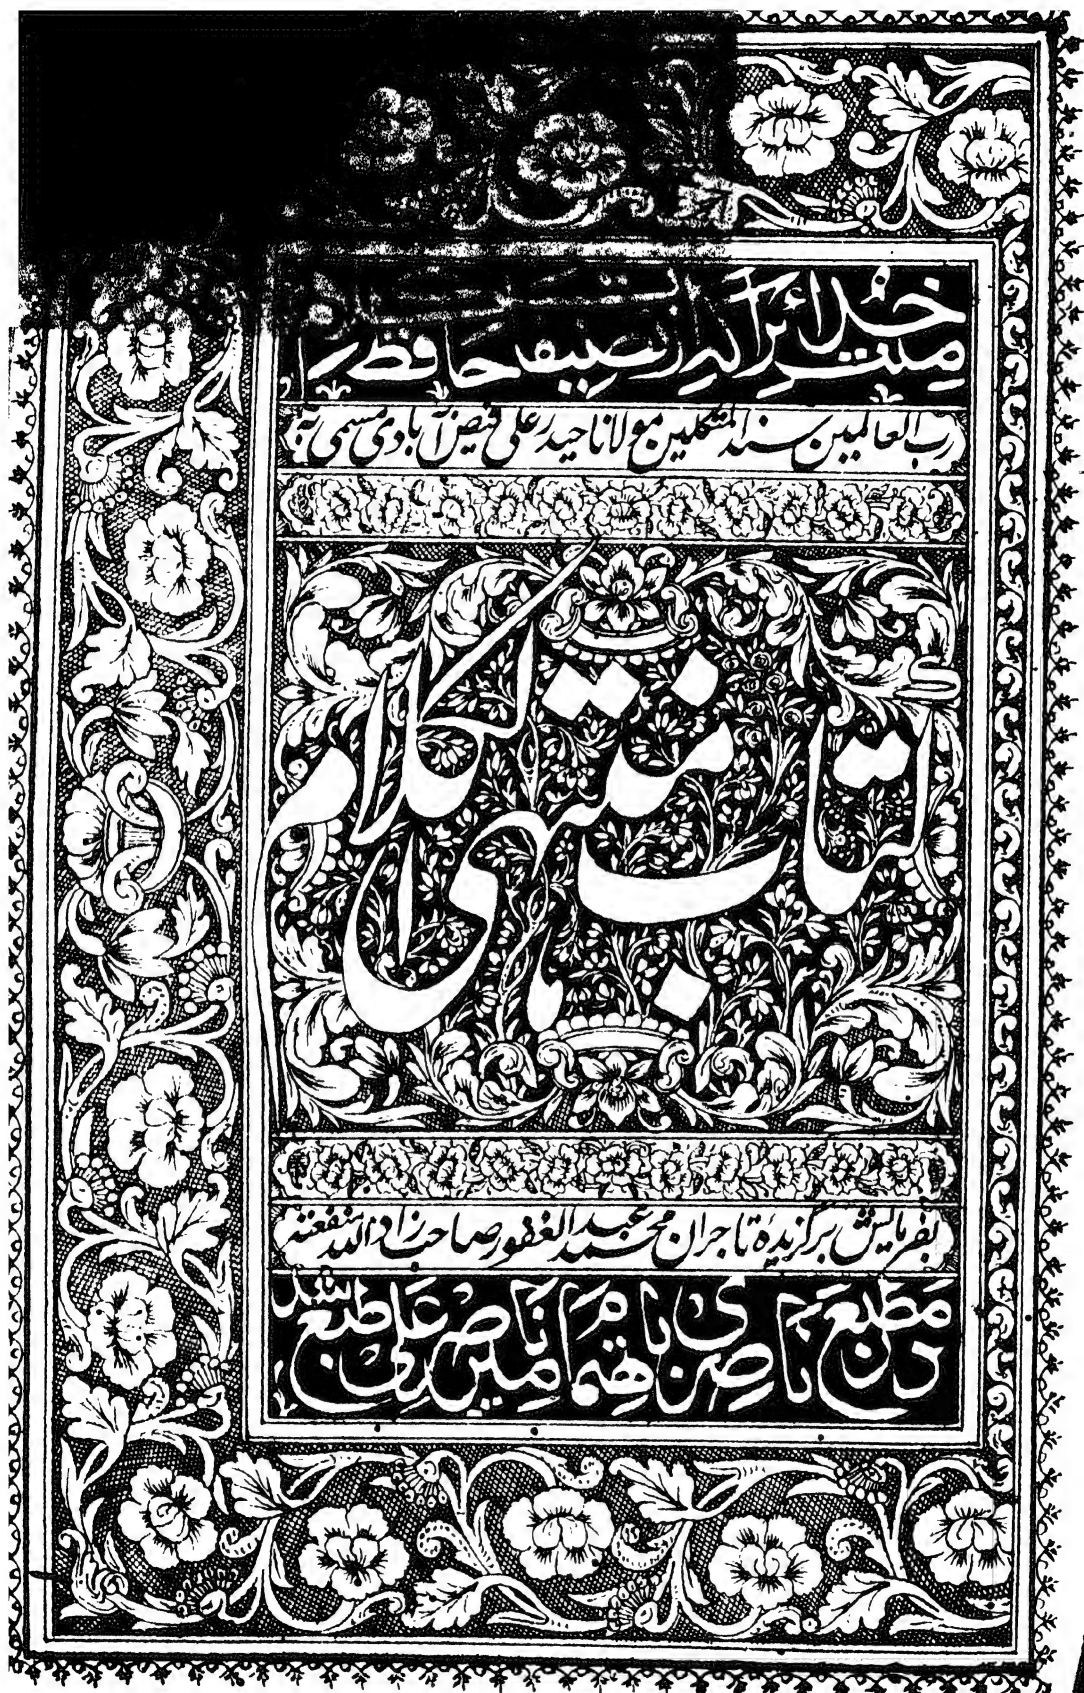 خدا را
منت برا که از سیف حافظ
رب العالمین سند المتکلمین مولانا حیدر علی فیض آبادی مسمی به
کتاب منتهی الکلام
بفرمایش برگزیده تاجران محمد عبد الغفور صاحب زاد الله
مطبع ناصری باهتمام ناصر علی طبع شد